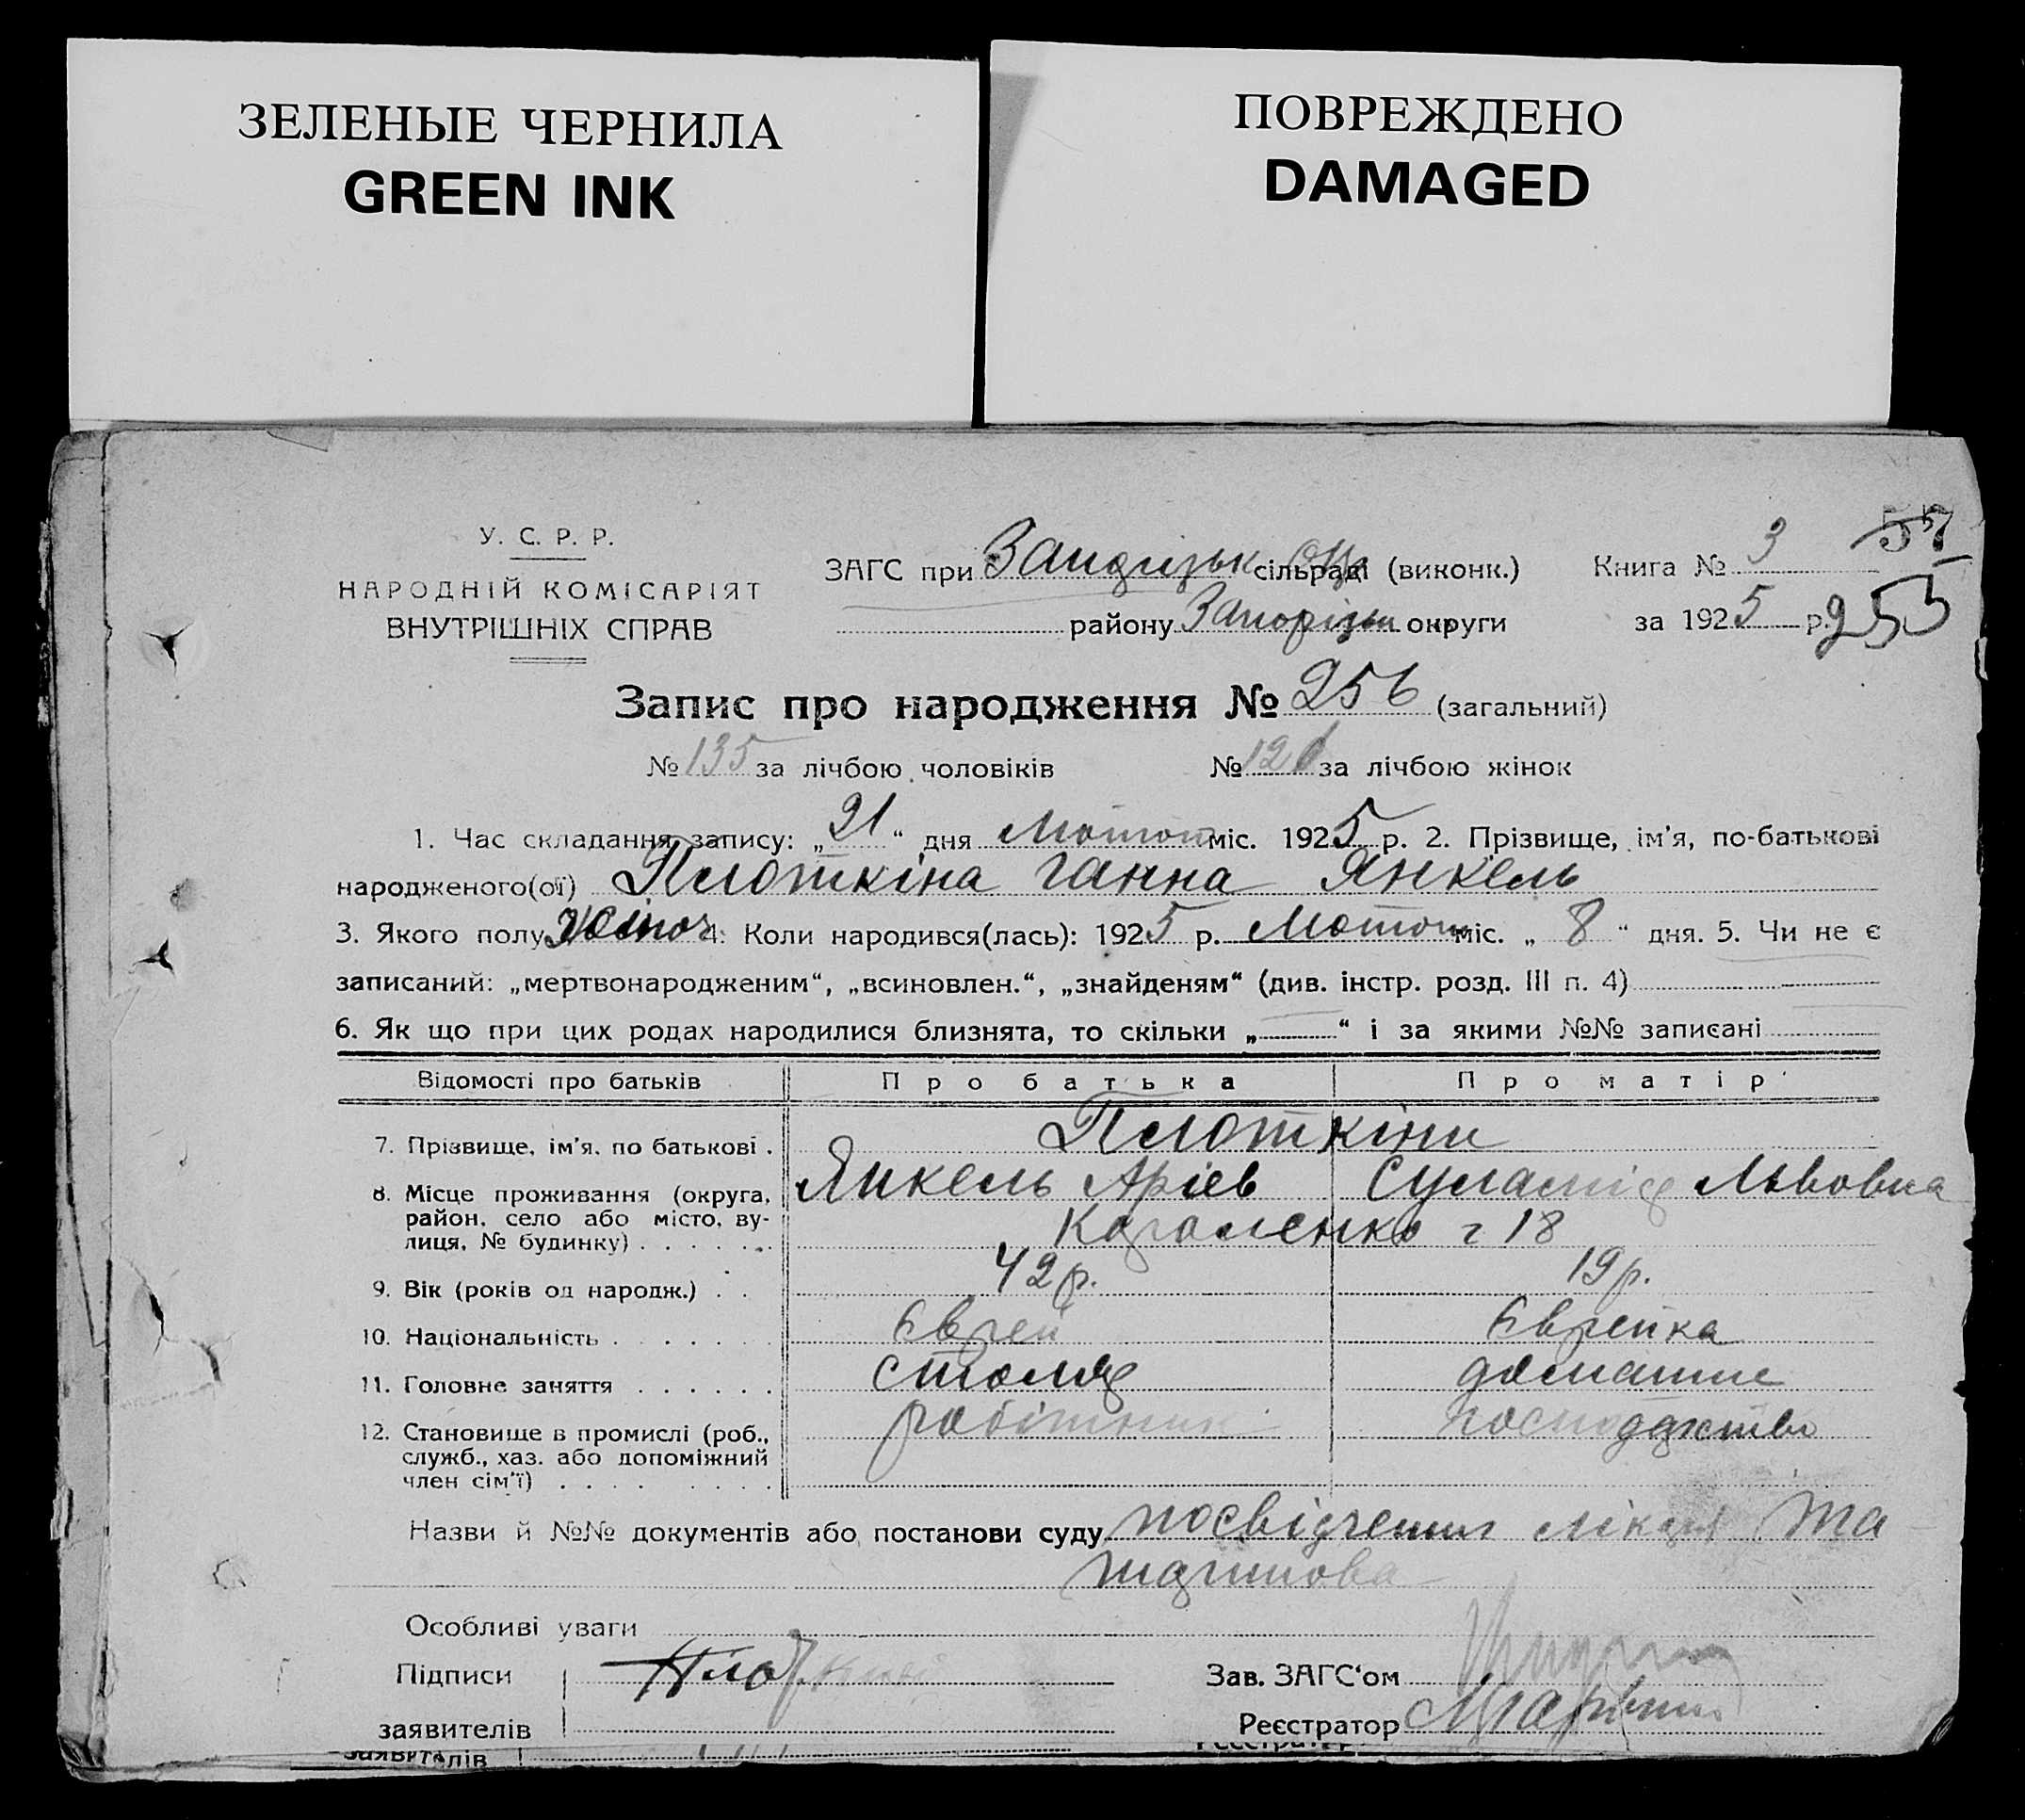 ЗЕЛЕНЫЕ ЧЕРНИЛА
GREEN INK
ПОВРЕЖДЕНО
DAMAGED
У. С. Р. Р.
НАРОДНІЙ КОМІСАРІЯТ
ВНУТРІШНІХ СПРАВ
ЗАГС при сільраді (виконк.)
району Запорізьк округи
Книга № 3
57
за 1925 р.
255
Запис про народження № 256 (загальний)
№ 135 за лічбою чоловіків № 121 за лічбою жінок
1. Час складання запису: „21“ дня Лютого міс. 1925 р. 2. Прізвище, ім'я, по-батькові
народженого(ої) Плоткіна Ганна Янкель
3. Якого полу Жіноч 4. Коли народився(лась): 1925 р. Лютого міс. „8“ дня. 5. Чи не є
записаний: „мертвонародженим“, „всиновлен.“, „знайденям“ (див. інстр. розд. III п. 4)
6. Як що при цих родах народилися близнята, то скільки „ “ і за якими №№ записані
Відомості про батьків Про батька Про матір
7. Прізвище, ім'я, по батькові . Плоткіни
8. Місце проживання (округа, Янкель Аріев Суламіф Львовна
район, село або місто, ву-
лиця, № будинку) . . . . . . 18
9. Вік (років од народж.) . . 42 р. 19 р.
10. Національність . . . . . Єврей Єврейка
11. Головне заняття . . . . . . столяр домашнє
12. Становище в промислі (роб., робітник господарство
служб., хаз. або допоміжний
член сім'ї) . . . . . . . .
Назви й №№ документів або постанови суду посвідчення лікаря та
Особливі уваги
Підписи Плоткин Зав. ЗАГС'ом
заявителів Реєстратор
заявителів Реєстратор